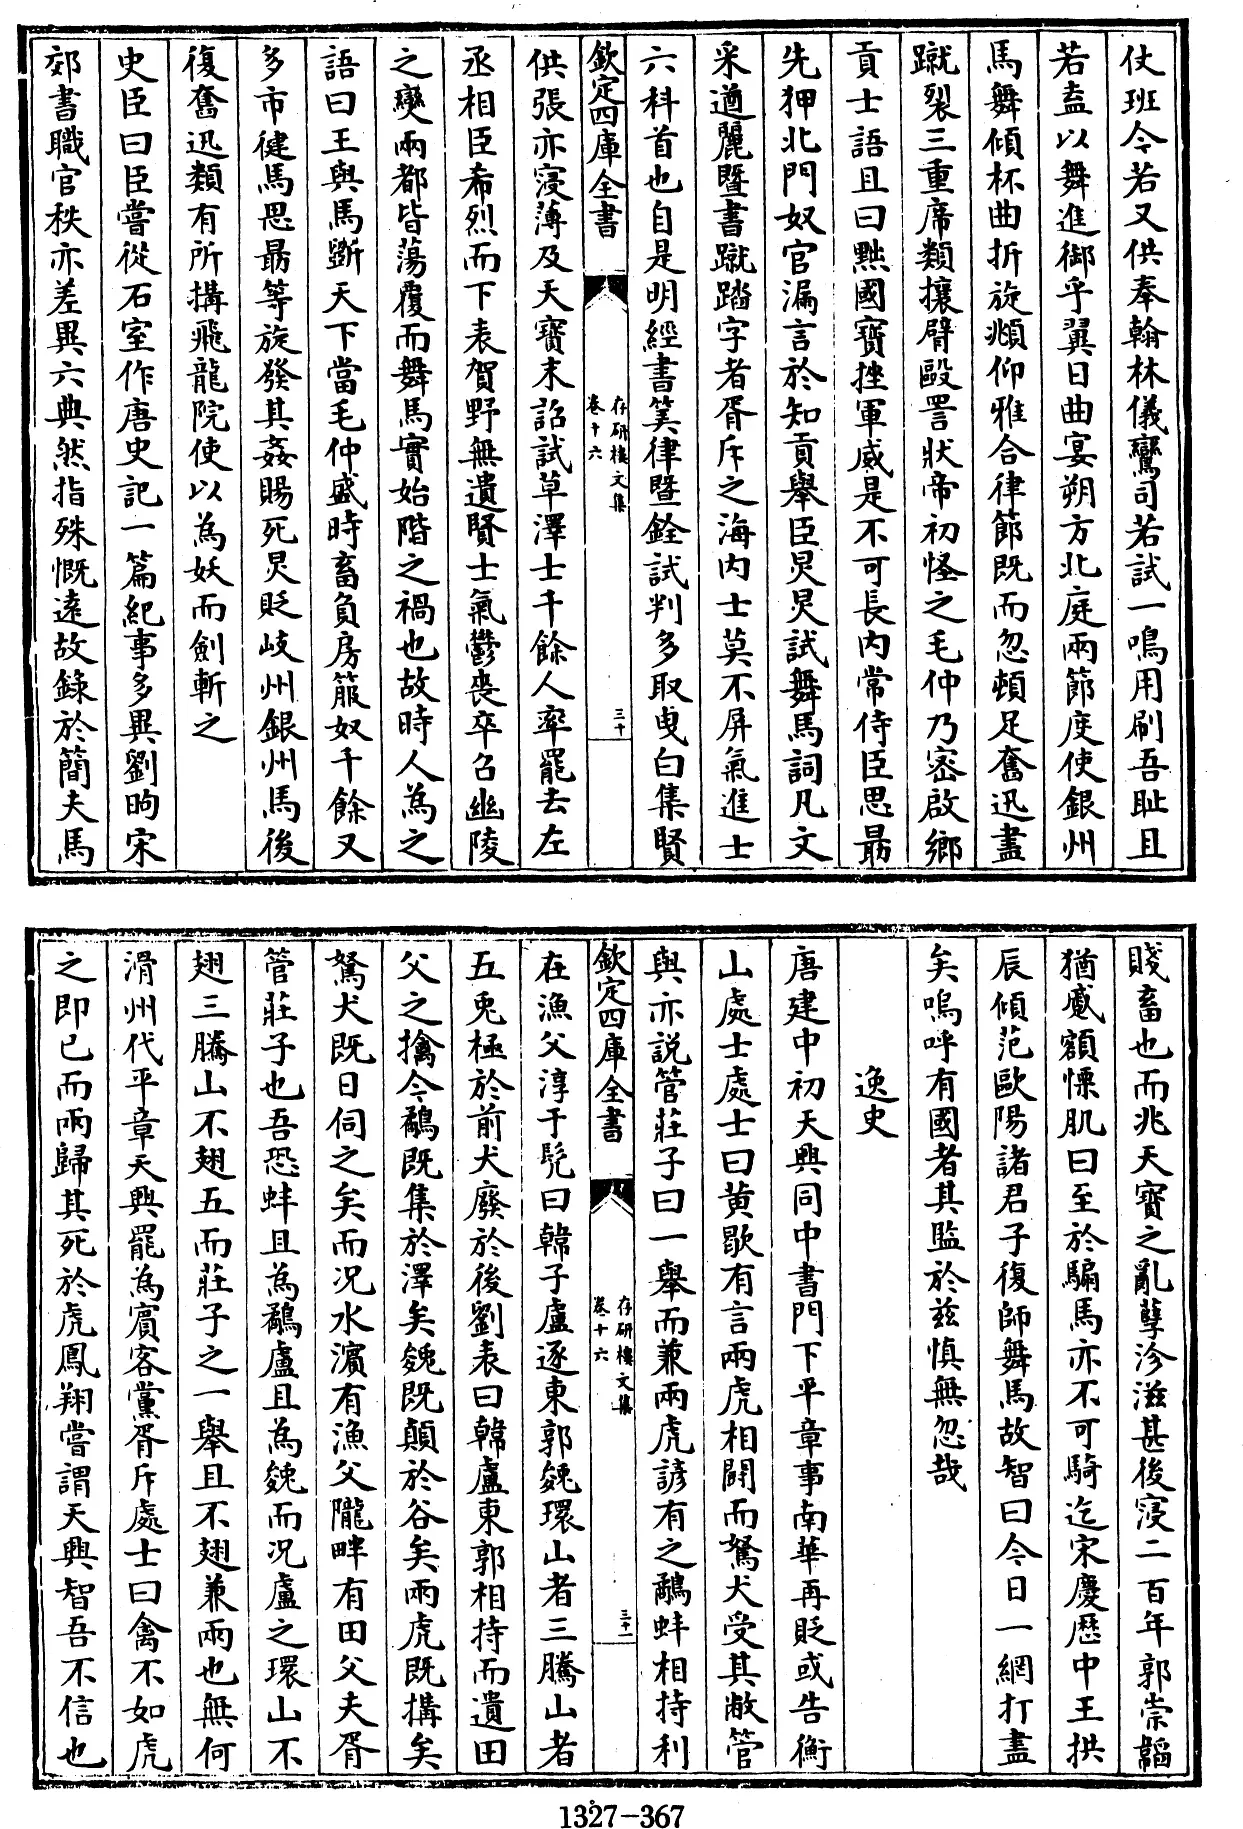 仗班今若又供奉翰林儀鸞司若試一鳴用刷吾耻且
若盍以舞進御乎翼日曲宴朔方北庭兩節度使銀州
馬舞傾杯曲折旋頫仰雅合律節既而忽頓足奮迅盡
蹴裂三重席類攘臂毆詈狀帝初怪之毛仲乃密啟鄉
貢士語且曰黜國寶挫軍威是不可長内常侍臣思勗
先狎北門奴官漏言於知貢舉臣炅炅試舞馬詞凡文
采遒麗暨書蹴踏字者胥斥之海内士莫不屏氣進士
六科首也自是明經書筭律暨銓試判多取曳白集賢
欽定四庫全書
存研樓文集
卷十六
三十
供張亦寖薄及天寶末詔試草澤士千餘人率罷去左
丞相臣希烈而下表賀野無遺賢士氣鬱喪卒召幽陵
之變兩都皆蕩覆而舞馬實始階之禍也故時人為之
語曰王與馬斷天下當毛仲盛時畜負房箙奴千餘又
多市健馬思勗等旋發其姦賜死炅貶岐州銀州馬後
復奮迅類有所搆飛龍院使以為妖而劍斬之
史臣曰臣嘗從石室作唐史記一篇紀事多異劉昫宋
郊書職官秩亦差異六典然指殊慨遠故錄於簡夫馬
賤畜也而兆天寶之亂孽沴滋甚後寖二百年郭崇韜
猶蹙額慄肌曰至於騸馬亦不可騎迄宋慶厯中王拱
辰傾范歐陽諸君子復師舞馬故智曰今日一網打盡
矣嗚呼有國者其監於兹慎無忽哉
逸史
唐建中初天興同中書門下平章事南華再貶或告衡
山處士處士曰黄歇有言兩虎相鬭而駑犬受其敝管
與亦説管莊子曰一舉而兼兩虎諺有之鷸蚌相持利
欽定四庫全書
存研樓文集
卷十六
三十一
在漁父淳于髠曰韓子盧逐東郭㕙環山者三騰山者
五兎極於前犬廢於後劉表曰韓盧東郭相持而遺田
父之擒今鷸既集於澤矣㕙既顛於谷矣兩虎既搆矣
駑犬既日伺之矣而况水濵有漁父隴畔有田父夫胥
管莊子也吾恐蚌且為鷸盧且為㕙而况盧之環山不
翅三騰山不翅五而莊子之一舉且不翅兼兩也無何
滑州代平章天興罷為賔客黨胥斥處士曰禽不如虎
之即已而兩歸其死於虎鳳翔嘗謂天興智吾不信也
1327-367